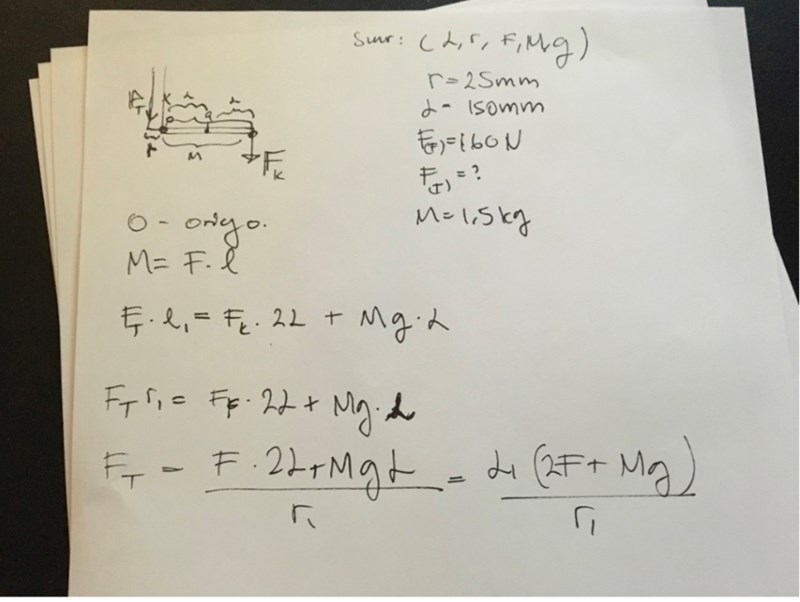 Svar: (L, r, F, M, g)
r = 25mm
L = 150mm
F(F) = 160 N
F(T) = ?
M = 1,5 kg
F_T
r
M
F_K
O - origo.
M = F · l
F_T · l₁ = F_K · 2L + Mg · L
F_T r₁ = F_F · 2L + Mg · L
F_T = F · 2L + MgL / r₁ = L₁ (2F + Mg) / r₁